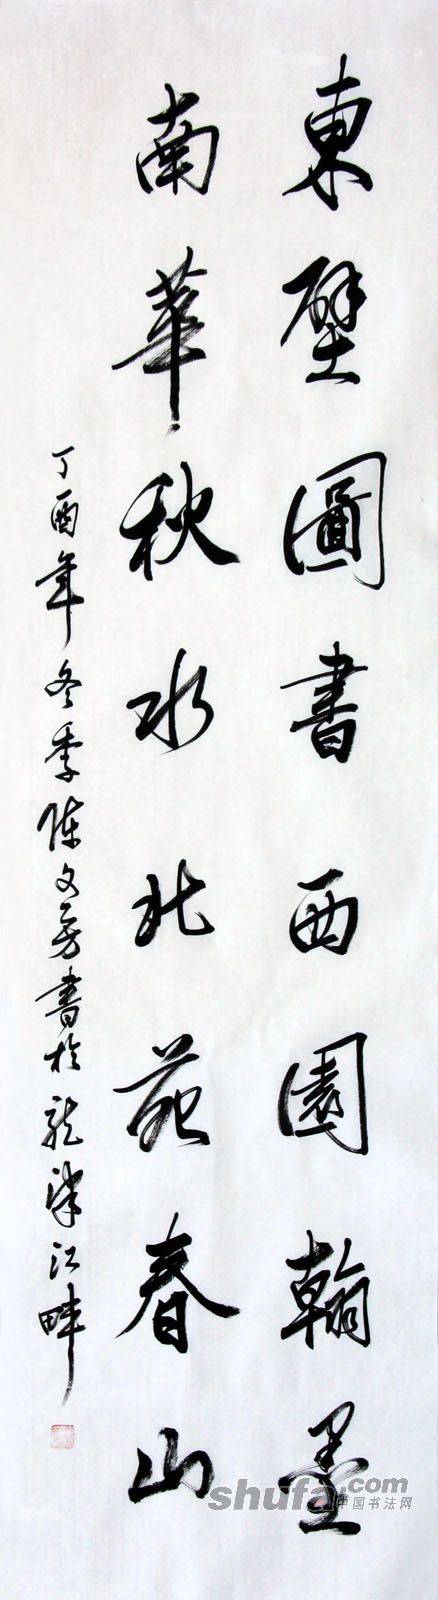 東壁圖書西園翰墨
南華秋水北苑春山
丁酉年冬季陳文芳書於龍津江畔
shufa.com
中国书法网